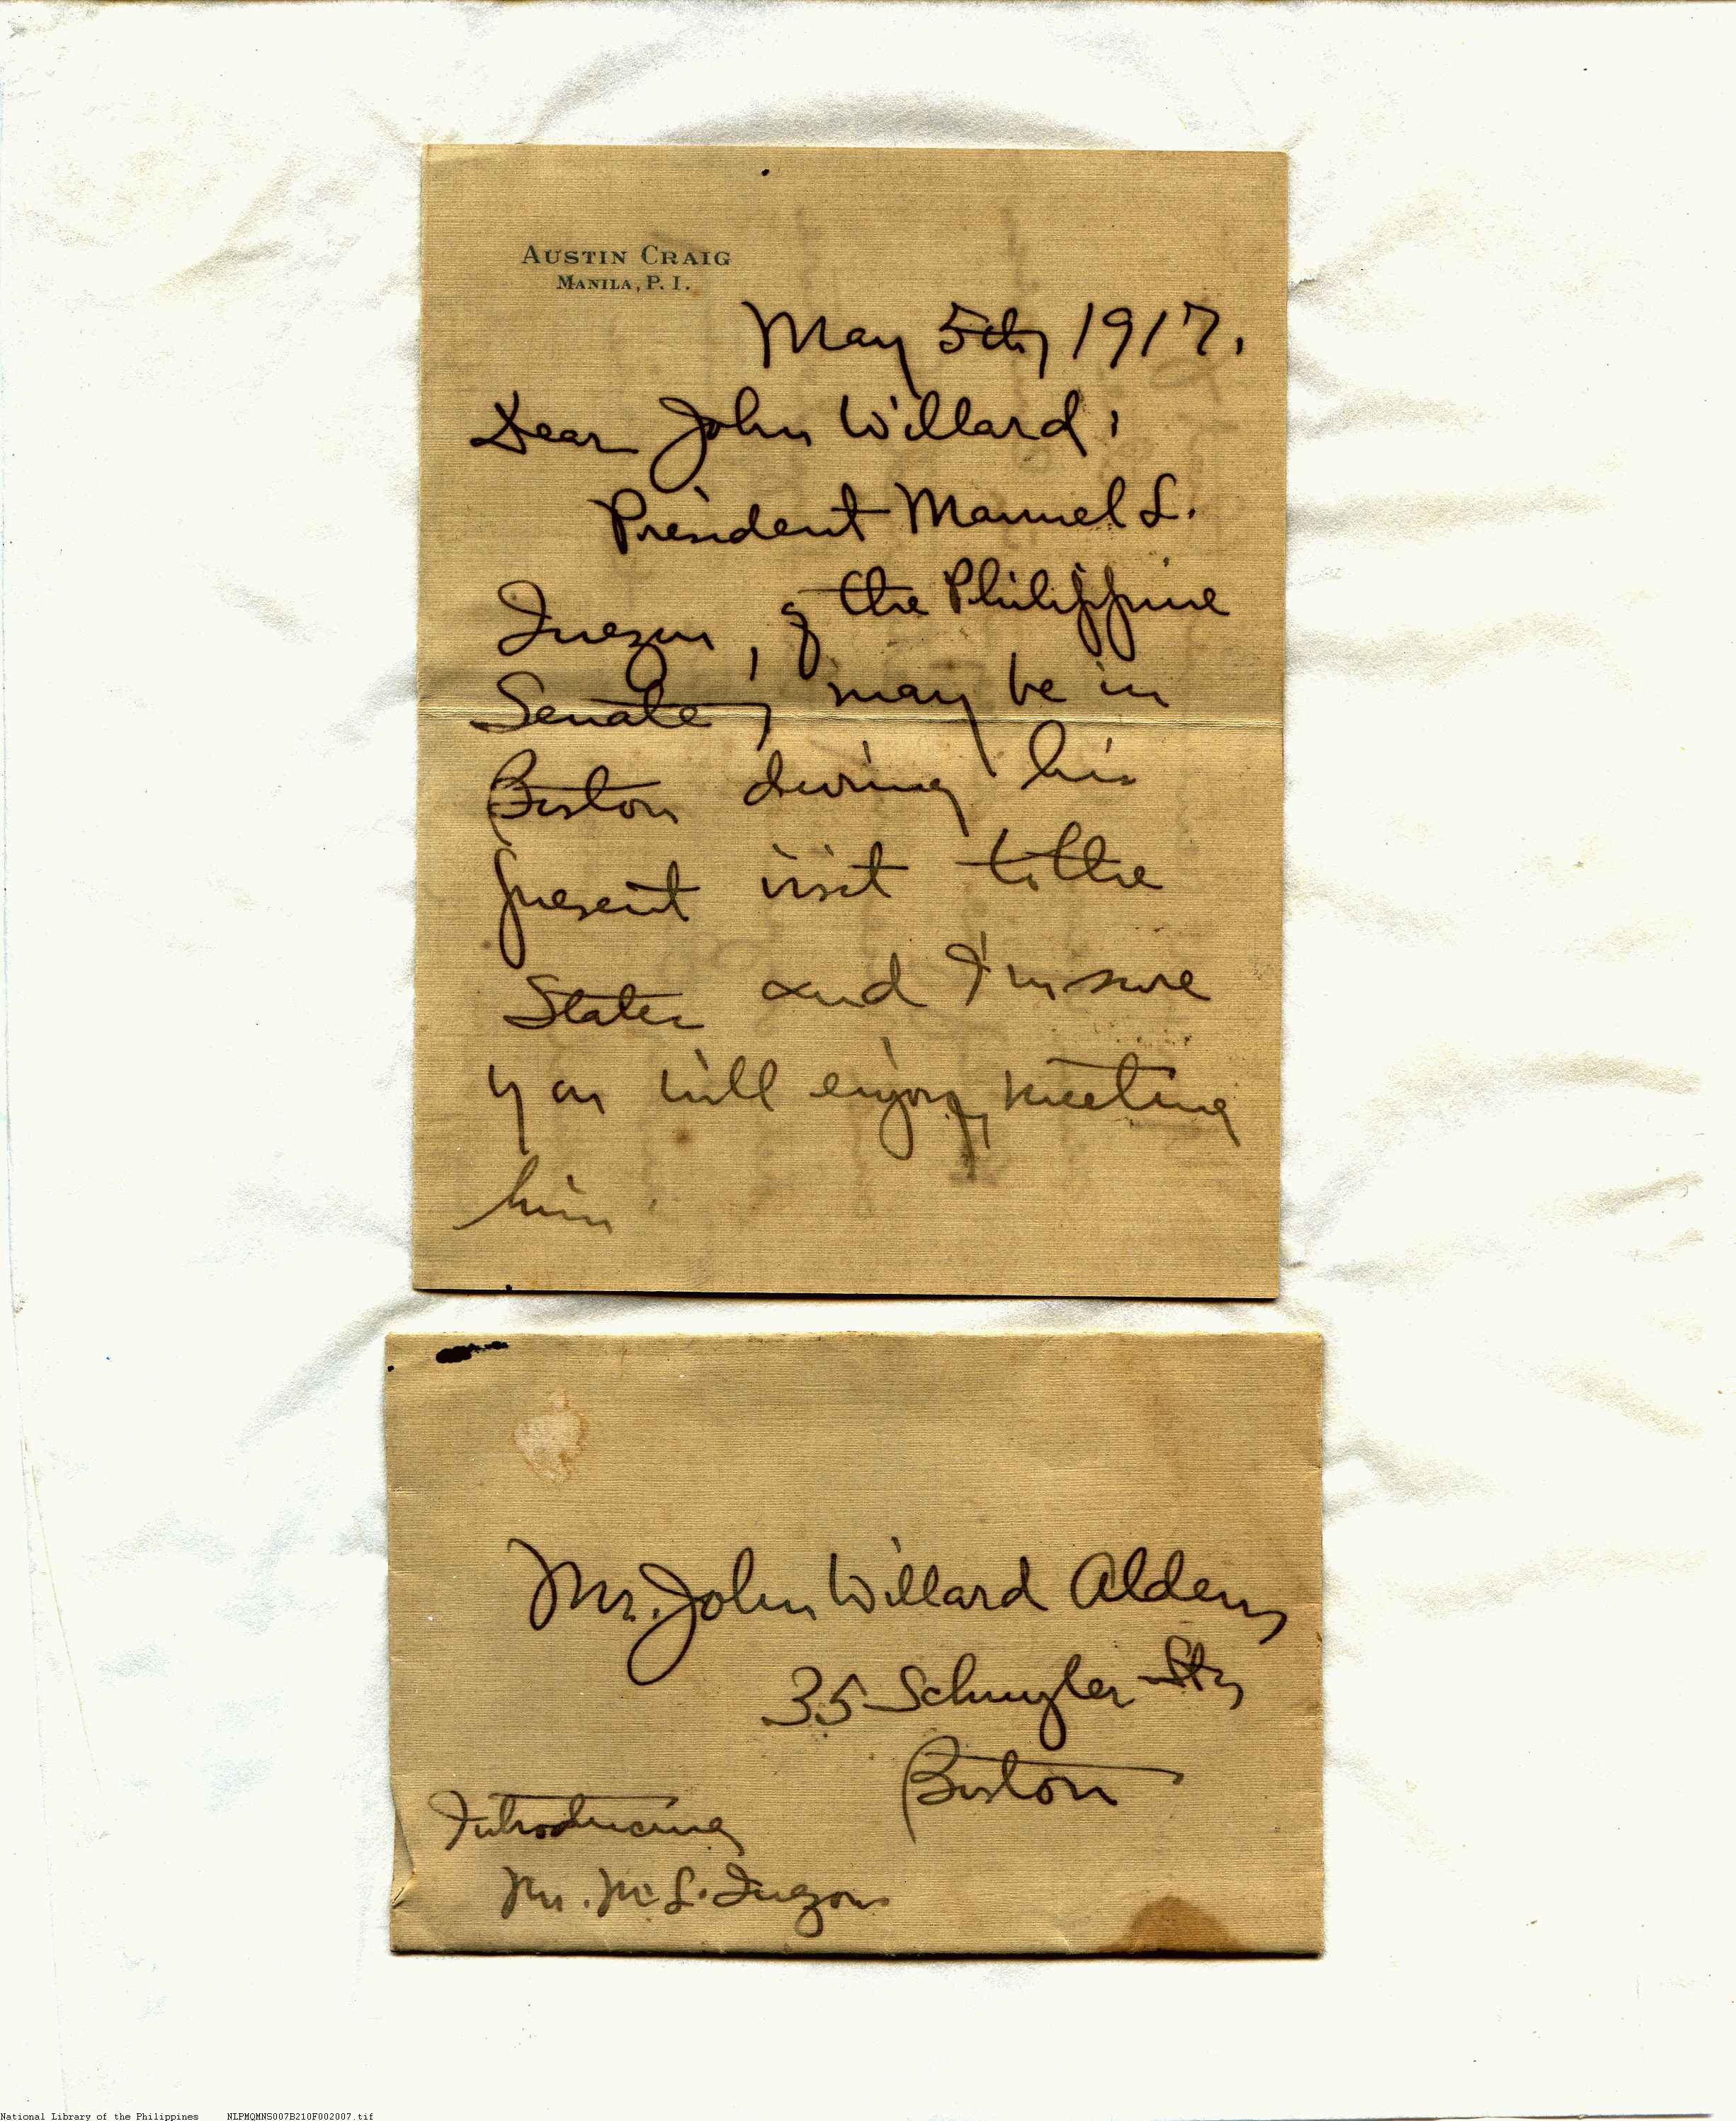 AUSTIN CRAIG
MANILA, P. I.
May 5th, 1917.
Dear John Willard:
President Manuel L.
Quezon, of the Philippine
Senate, may be in
Boston during his
present visit to the
States and I'm sure
you will enjoy meeting
him.
Mr. John Willard Alden,
35 Schuyler St.,
Boston
Introducing
Mr. M. L. Quezon
National Library of the Philippines NLPMQMNS007B210F002007.tif